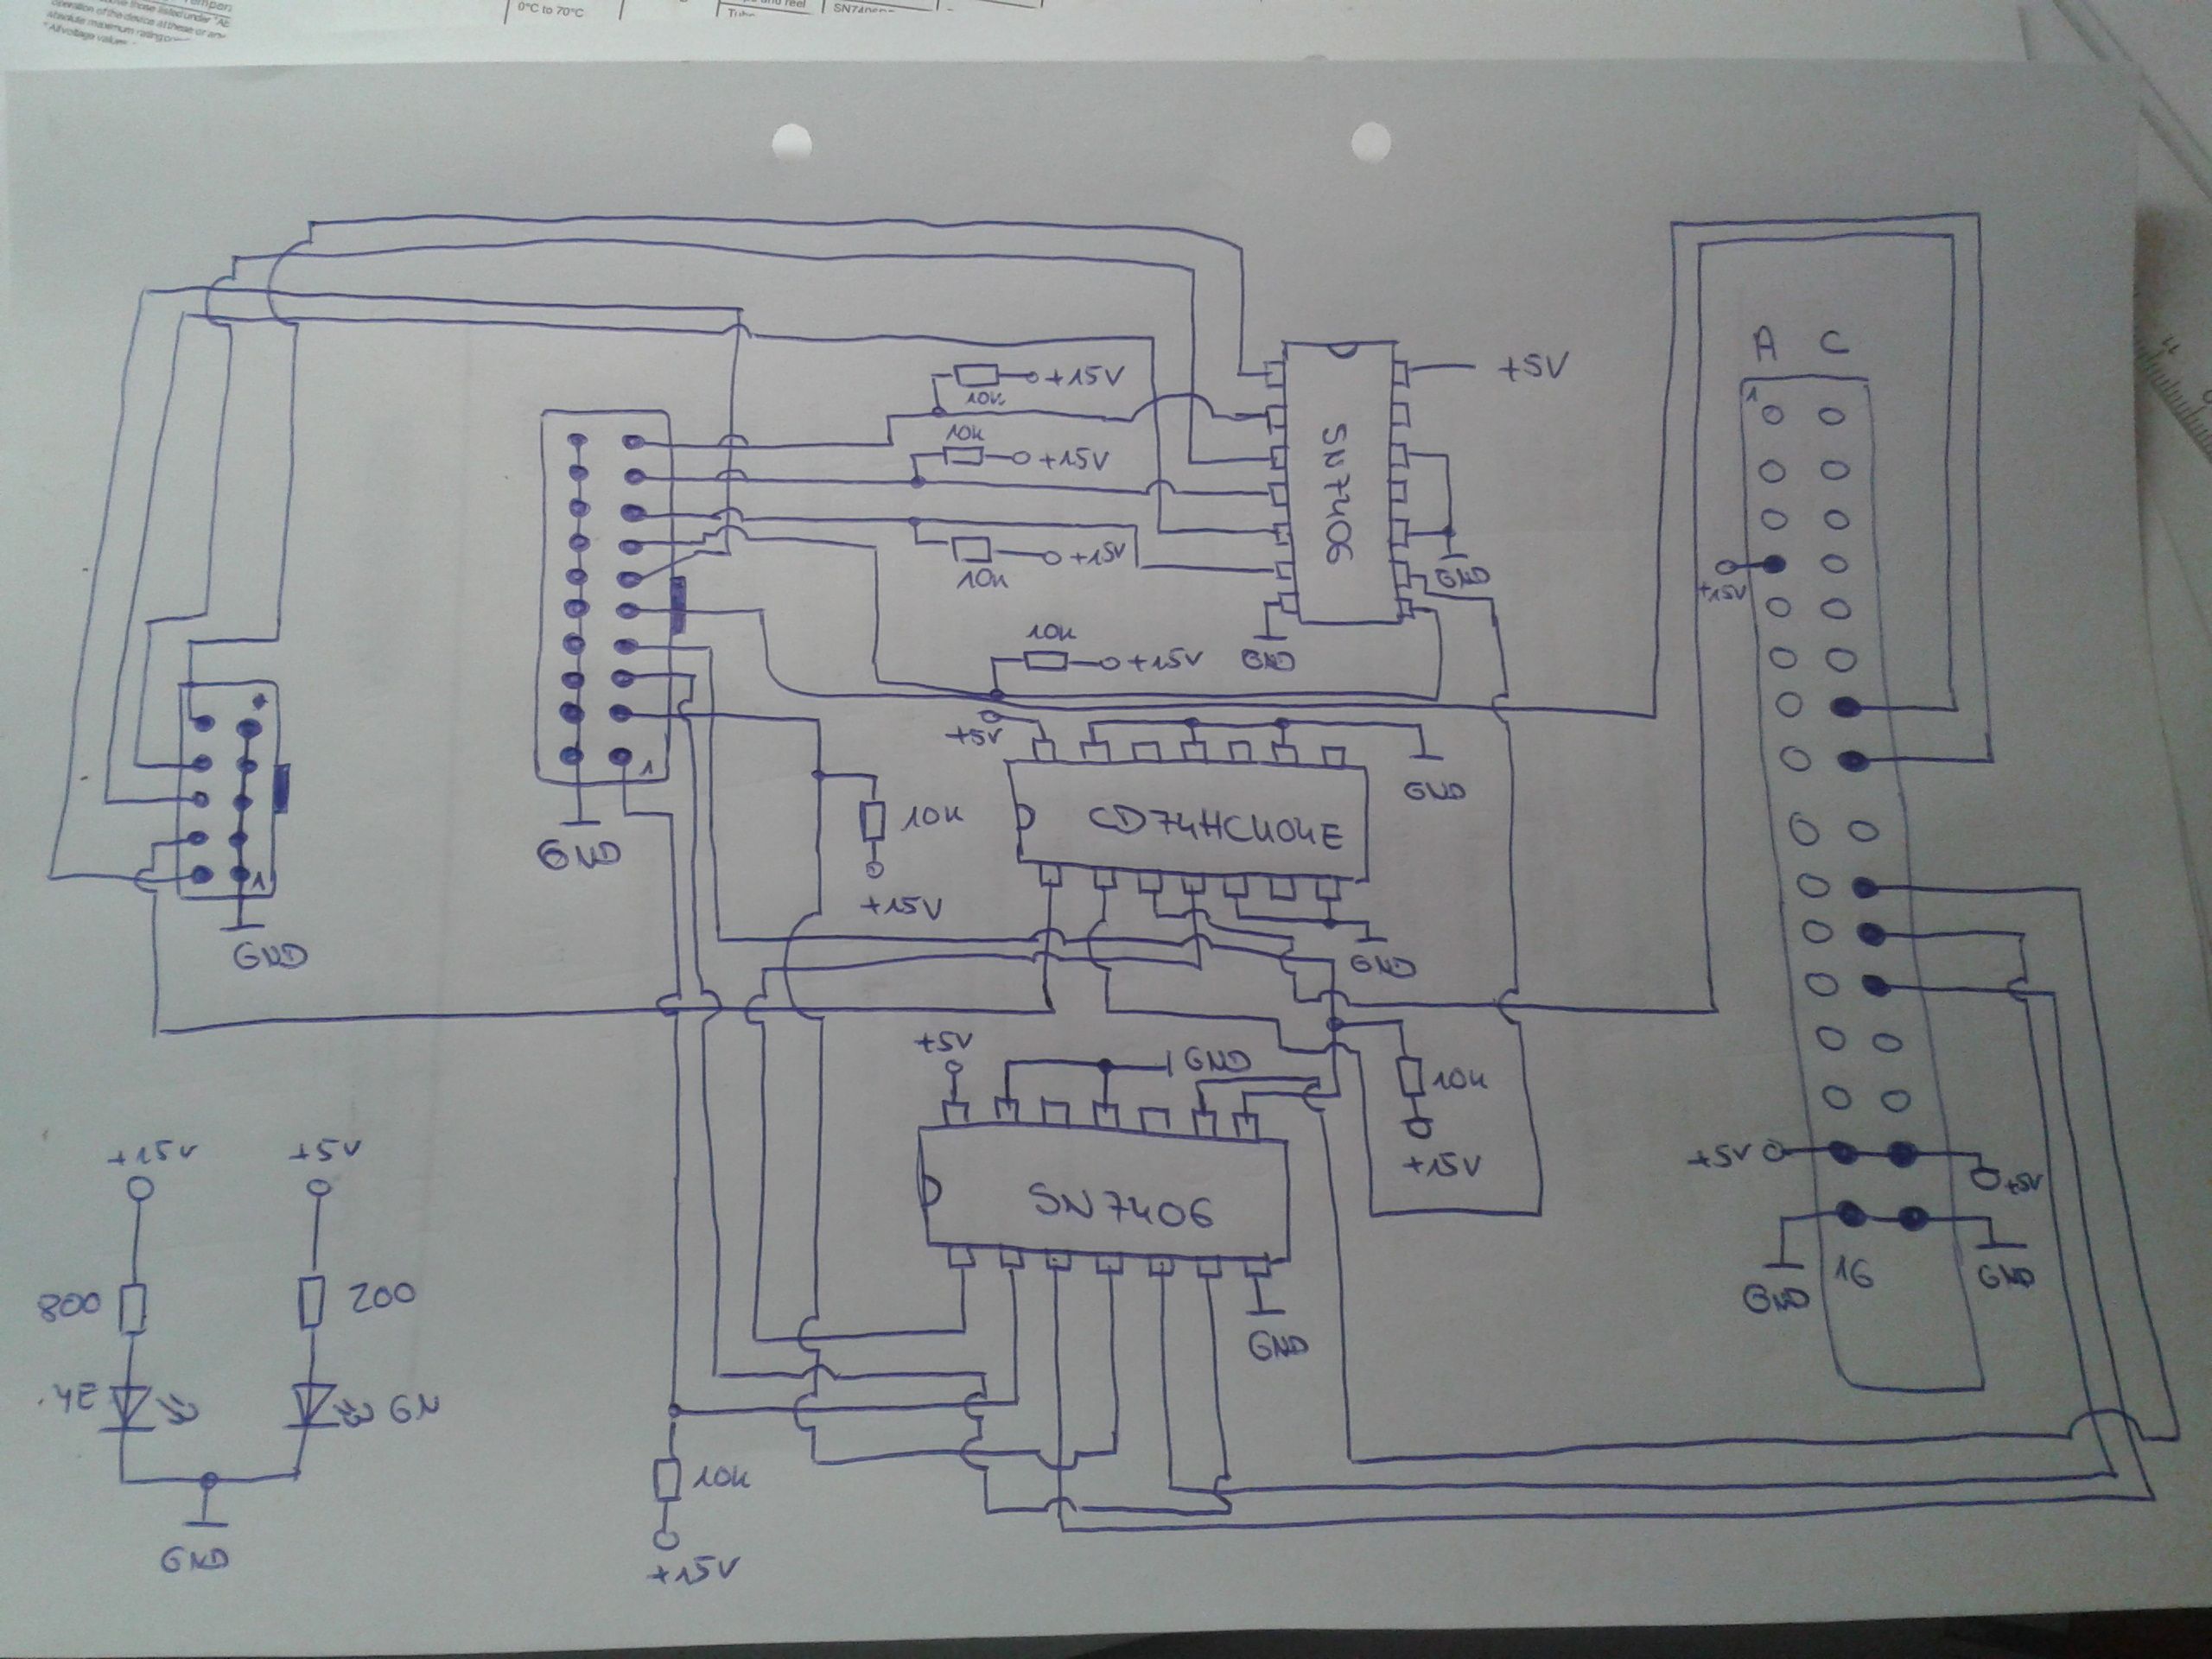 operation of the device at these or any
0°C to 70°C
A C
1
+5V
10K
+15V
10K
+15V
SN7406
10K
+15V
GND
+15V
10K
+15V
GND
+5V
GND
1
GND
10K
+15V
CD74HC404E
1
GND
GND
+5V
GND
10K
+15V
SN7406
+5V
+5V
GND
16
GND
GND
+15V
+5V
800
200
GN
GND
10K
+15V